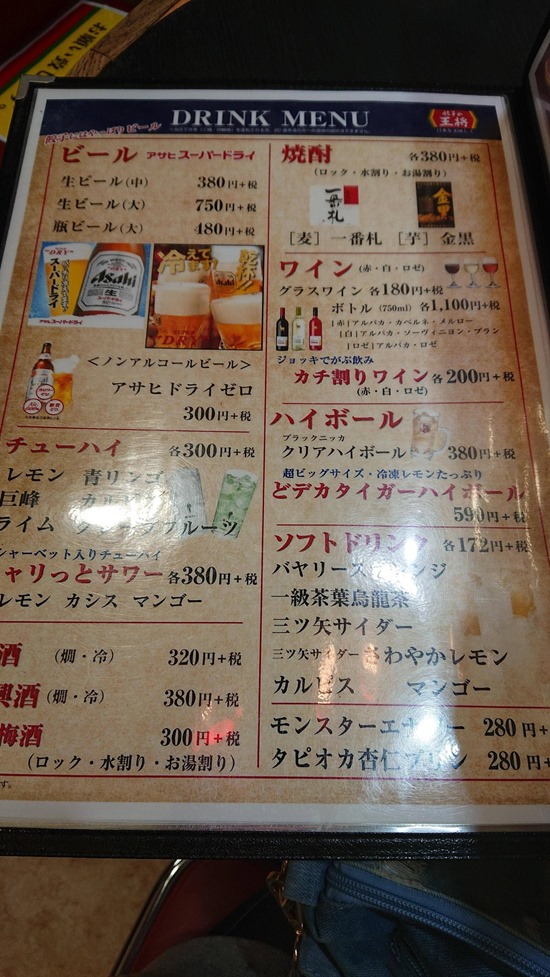 お願い致し
餃子にはやっぱり ビール
DRINK MENU
餃子の
王将
ビール アサヒスーパードライ
生ビール(中) 380円+税
生ビール(大) 750円+税
瓶ビール(大) 480円+税
"DRY"
スーパードライ
アサヒスーパードライ
Asahi
生
冷えて
ます!
乾杯!
DRY
<ノンアルコールビール>
アサヒドライゼロ
300円+税
チューハイ 各300円+税
レモン 青リンゴ
巨峰 カルピス
ライム
シャーベット入りチューハイ
シャリっとサワー 各380円+税
レモン カシス マンゴー
酒 (燗・冷) 320円+税
興酒 (燗・冷) 380円+税
梅酒 300円+税
(ロック・水割り・お湯割り)
焼酎 各380円+税
(ロック・水割り・お湯割り)
一番札
金黒
[麦] 一番札 [芋] 金黒
ワイン (赤・白・ロゼ)
グラスワイン 各180円+税
ボトル (750ml) 各1,100円+税
[赤]アルパカ・カベルネ・メルロー
[白]アルパカ・ソーヴィニヨン・ブラン
[ロゼ]アルパカ・ロゼ
ジョッキでがぶ飲み
カチ割りワイン 各200円+税
(赤・白・ロゼ)
ハイボール
ブラックニッカ
クリアハイボール 380円+税
超ビッグサイズ・冷凍レモンたっぷり
どデカタイガーハイボール
590円+税
ソフトドリンク 各172円+税
バヤリースオレンジ
一級茶葉烏龍茶
三ツ矢サイダー
三ツ矢サイダー さわやかレモン
カルピス マンゴー
モンスターエナジー 280円+
タピオカ杏仁プリン 280円+